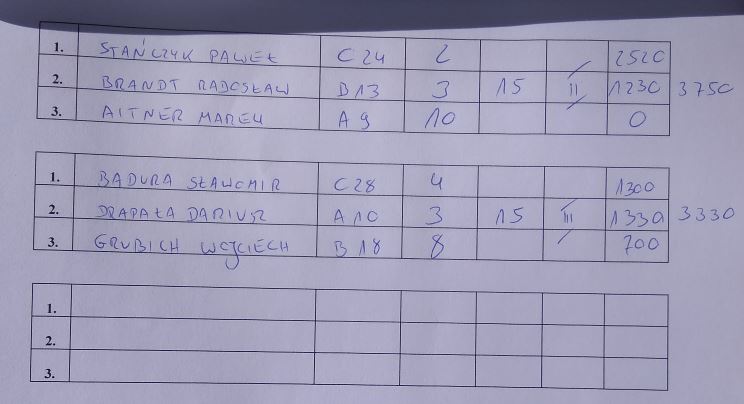 1. STAŃCZYK PAWEŁ C24 2 2520
2. BRANDT RADOSŁAW B13 3 15 II 1230 3750
3. AITNER MAREK A9 10 0
1. BADURA SŁAWOMIR C28 4 1300
2. DRAPAŁA DARIUSZ A10 3 15 III 1330 3330
3. GRUBICH WOJCIECH B18 8 700
1.
2.
3.